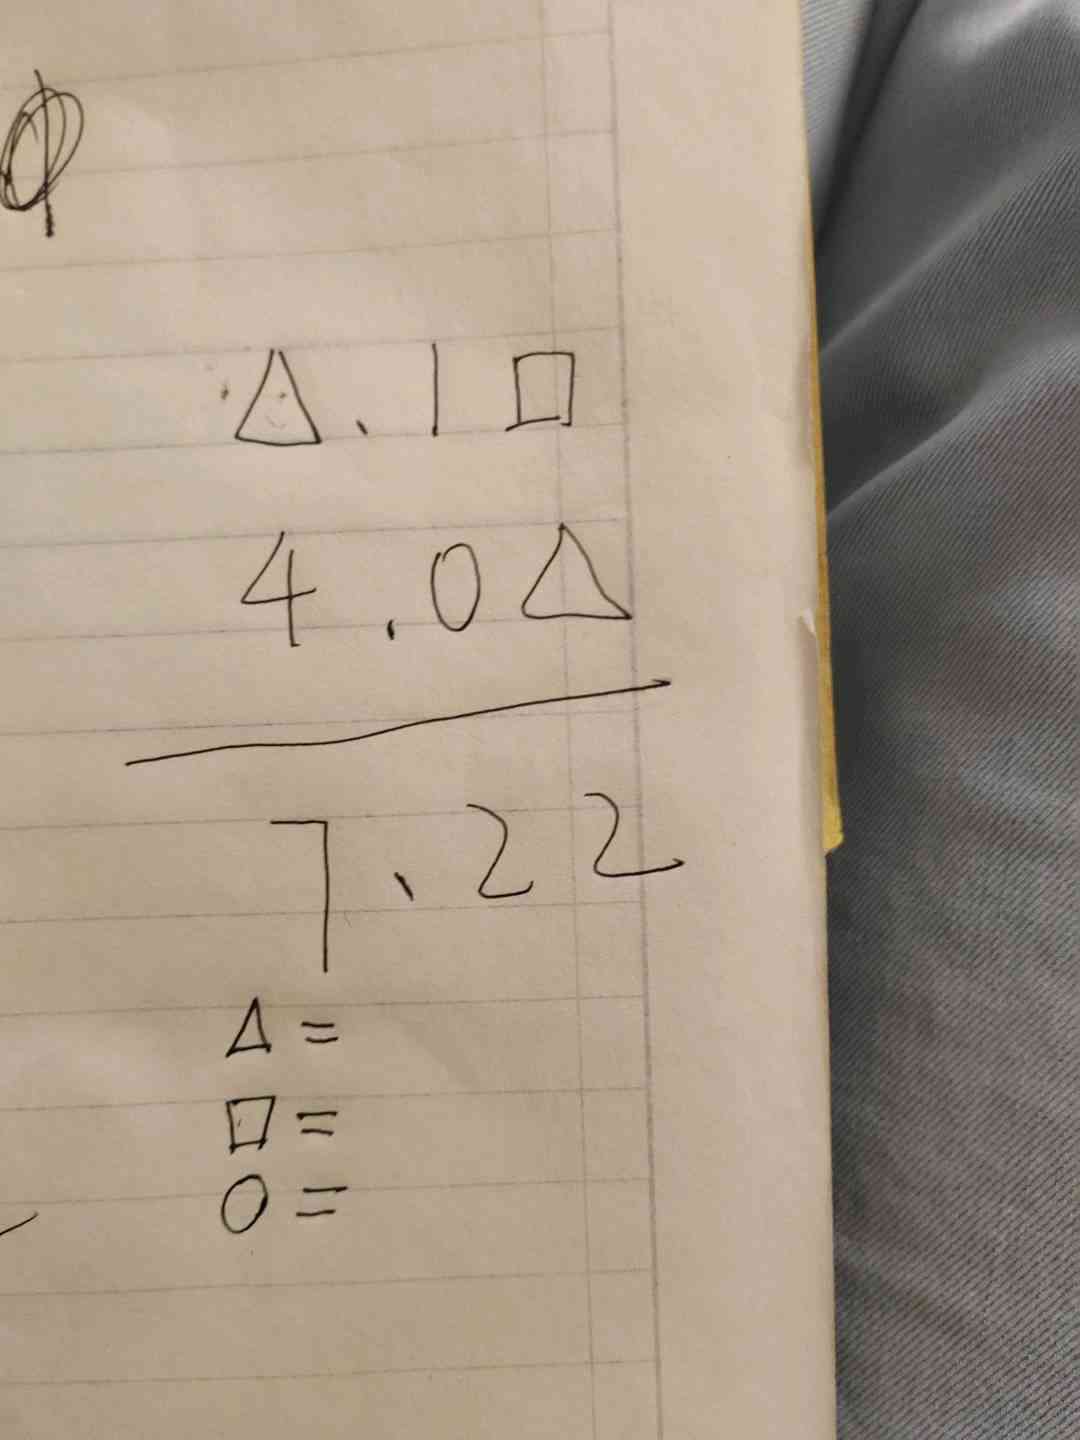 △.1□
4.0△
7.22
△=
□=
O=